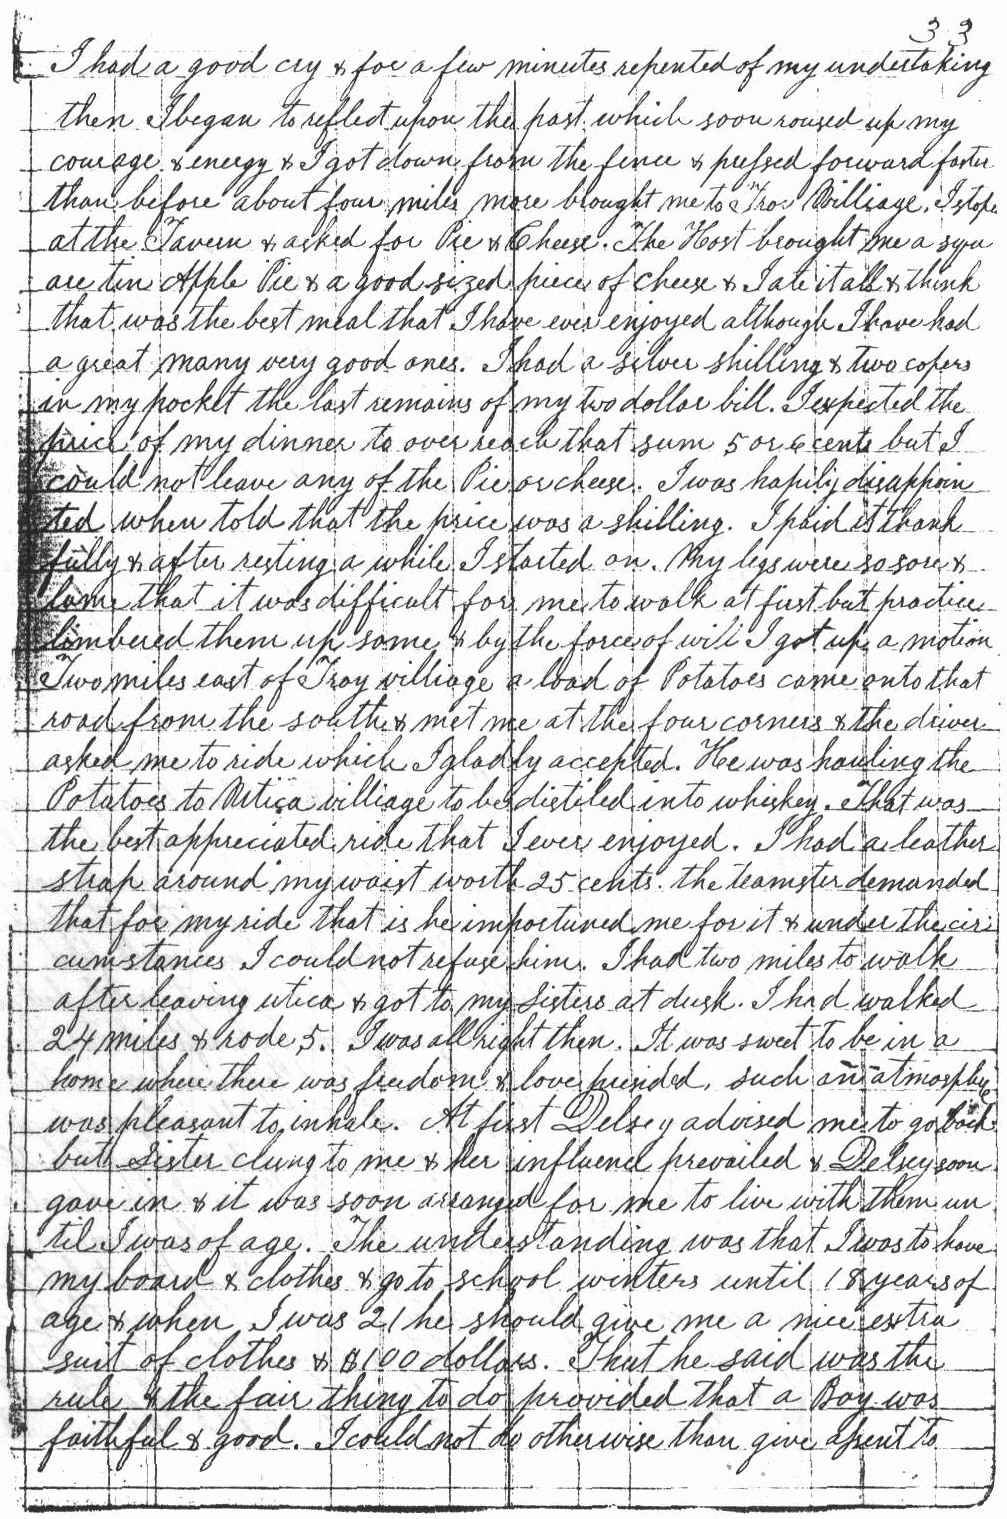 33
I had a good cry & for a few minutes repented of my undertaking
then I began to reflect upon the past which soon roused up my
courage & energy & I got down from the fence & pressed forward faster
than before about four miles more brought me to Troy Villiage. I stope
at the Tavern & asked for Pie & Cheese. The Host brought me a squ
are tin Apple Pie & a good sized piece of cheese & I ate it all & think
that was the best meal that I have ever enjoyed although I have had
a great many very good ones. I had a silver shilling & two copers
in my pocket the last remains of my two dollar bill. I expected the
price of my dinner to over reach that sum 5 or 6 cents but I
could not leave any of the Pie or cheese. I was hapily disappoin
ted when told that the price was a shilling. I paid it thank
fully & after resting a while I started on. My legs were so sore &
lame that it was difficult for me to walk at first but practice
limbered them up some & by the force of will I got up a motion
Two miles east of Troy villiage a load of Potatoes came onto that
road from the south & met me at the four corners & the driver
asked me to ride which I gladly accepted. He was hauling the
Potatoes to Utica villiage to be distiled into whiskey. That was
the best appreciated ride that I ever enjoyed. I had a leather
strap around my waist worth 25 cents. the Teamster demanded
that for my ride that is he importuned me for it & under the cir
cumstances I could not refuse him. I had two miles to walk
after leaving utica & got to my Sisters at dusk. I had walked
24 miles & rode 5. I was all right then. It was sweet to be in a
home where there was freedom & love presided, such an atmosphere
was pleasant to inhale. At first Delsey advised me to go back
but Sister clung to me & her influence prevailed & Delsey soon
gave in & it was soon arranged for me to live with them un
til I was of age. The understanding was that I was to have
my board & clothes & go to school winters until 18 years of
age & when I was 21 he should give me a nice extra
suit of clothes & $100 dollars. That he said was the
rule & the fair thing to do provided that a Boy was
faithful & good. I could not do otherwise than give assent to